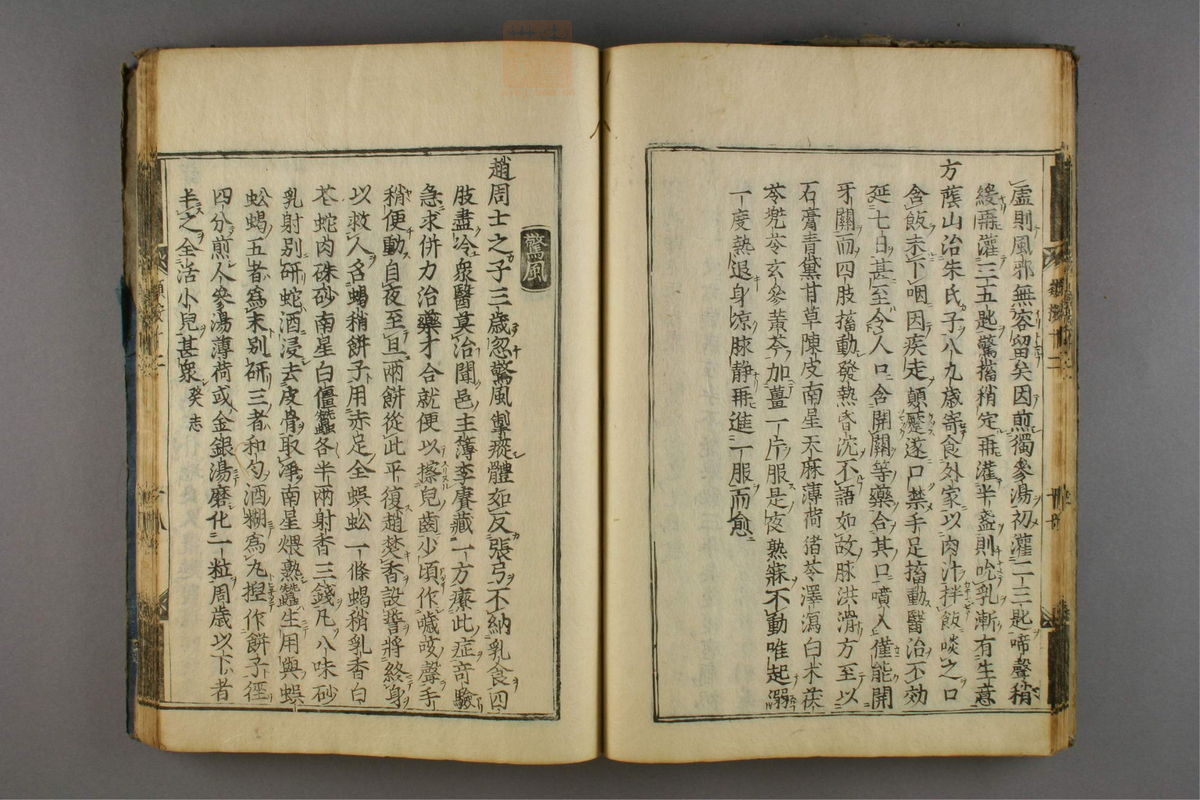 虛則風邪無容留矣因煎獨參湯初灌二三匙啼聲稍
緩再灌三五匙驚搐稍定再灌半盞則吮乳漸有生意
方蔭山治朱氏子八九歲寄食外家以肉汁拌飯啖之口
含飯未下咽因疾走顛蹙遂口禁手足搐動醫治不効
延七日甚至令人口含開關等藥合其口噴入僅能開
牙關而四肢搐動發熱昏沈不語如故脉洪滑方至以
石膏青黛甘草陳皮南星天麻薄荷猪苓澤瀉白术茯
苓玄參黃芩加薑一片服是夜熟寐不動唯起溺
一度熱退身凉脉静再進一服而愈
驚風
趙周士之子三歲忽驚風掣瘲體如反張弓不納乳食四
肢盡冷衆醫莫治聞邑主簿李賡藏一方療此症奇驗
急求併力治藥才合就便以擦兒齒少頃作嚏咳聲手
稍便動自夜至旦兩餅從此平復趙焚香設誓將終身
以救人名蝎稍餅子用赤足全蜈蚣一條蝎稍乳香白
花蛇肉硃砂南星白僵蠶各半兩射香三錢凡八味砂
乳射别研蛇酒浸去皮骨取淨南星煨熟蠶生用與蜈
蚣蝎五者為末别研三者和勻酒糊為丸揑作餅子徑
四分煎人參湯薄荷或金銀湯磨化一粒周歲以下者
半之全活小兒甚衆 癸志